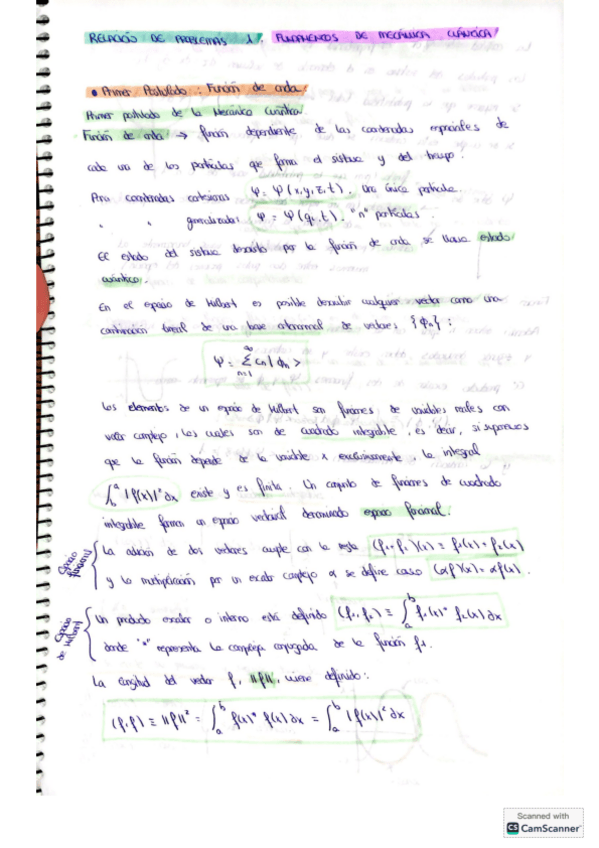 RELACIÓ DE PROBLEMAS 1. FUNDAMENTOS DE MECÁNICA CUÁNTICA
• Primer Postulado: Función de onda.
Primer postulado de la Mecánica Cuántica
Función de onda → función dependiente de las coordenadas espaciales de
cada una de las partículas que forma el sistema y del tiempo.
Para coordenadas cartesianas Ψ = Ψ(x,y,z,t). Una única partícula.
" " generalizadas: Ψ = Ψ(q,t). "n" partículas.
El estado del sistema descrito por la función de onda se llama estado
cuántico.
En el espacio de Hilbert es posible describir cualquier vector como una
combinación lineal de una base ortonormal de vectores {Φn}:
Ψ = Σ cn | Φn >
n=1
∞
Los elementos de un espacio de Hilbert son funciones de variables reales con
valor complejo, las cuales son de cuadrado integrable, es decir, si suponemos
que la función depende de la variable x exclusivamente, la integral
∫ₐᵇ |f(x)|² dx existe y es finita. Un conjunto de funciones de cuadrado
integrable forman un espacio vectorial denominado espacio funcional.
Espacio funcional { La adición de dos vectores cumple con la regla (f₁+f₂)(x) = f₁(x) + f₂(x)
y la multiplicación por un escalar complejo α se define como (αf)(x) = αf(x).
Espacio de Hilbert { Un producto escalar o interno está definido (f₁,f₂) ≡ ∫ₐᵇ f₁(x)* f₂(x) dx
donde "*" representa la compleja conjugada de la función f₁.
La longitud del vector f, ||f||, viene definido:
(f,f) ≡ ||f||² = ∫ₐᵇ f(x)* f(x) dx = ∫ₐᵇ |f(x)|² dx
Scanned with
CS CamScanner